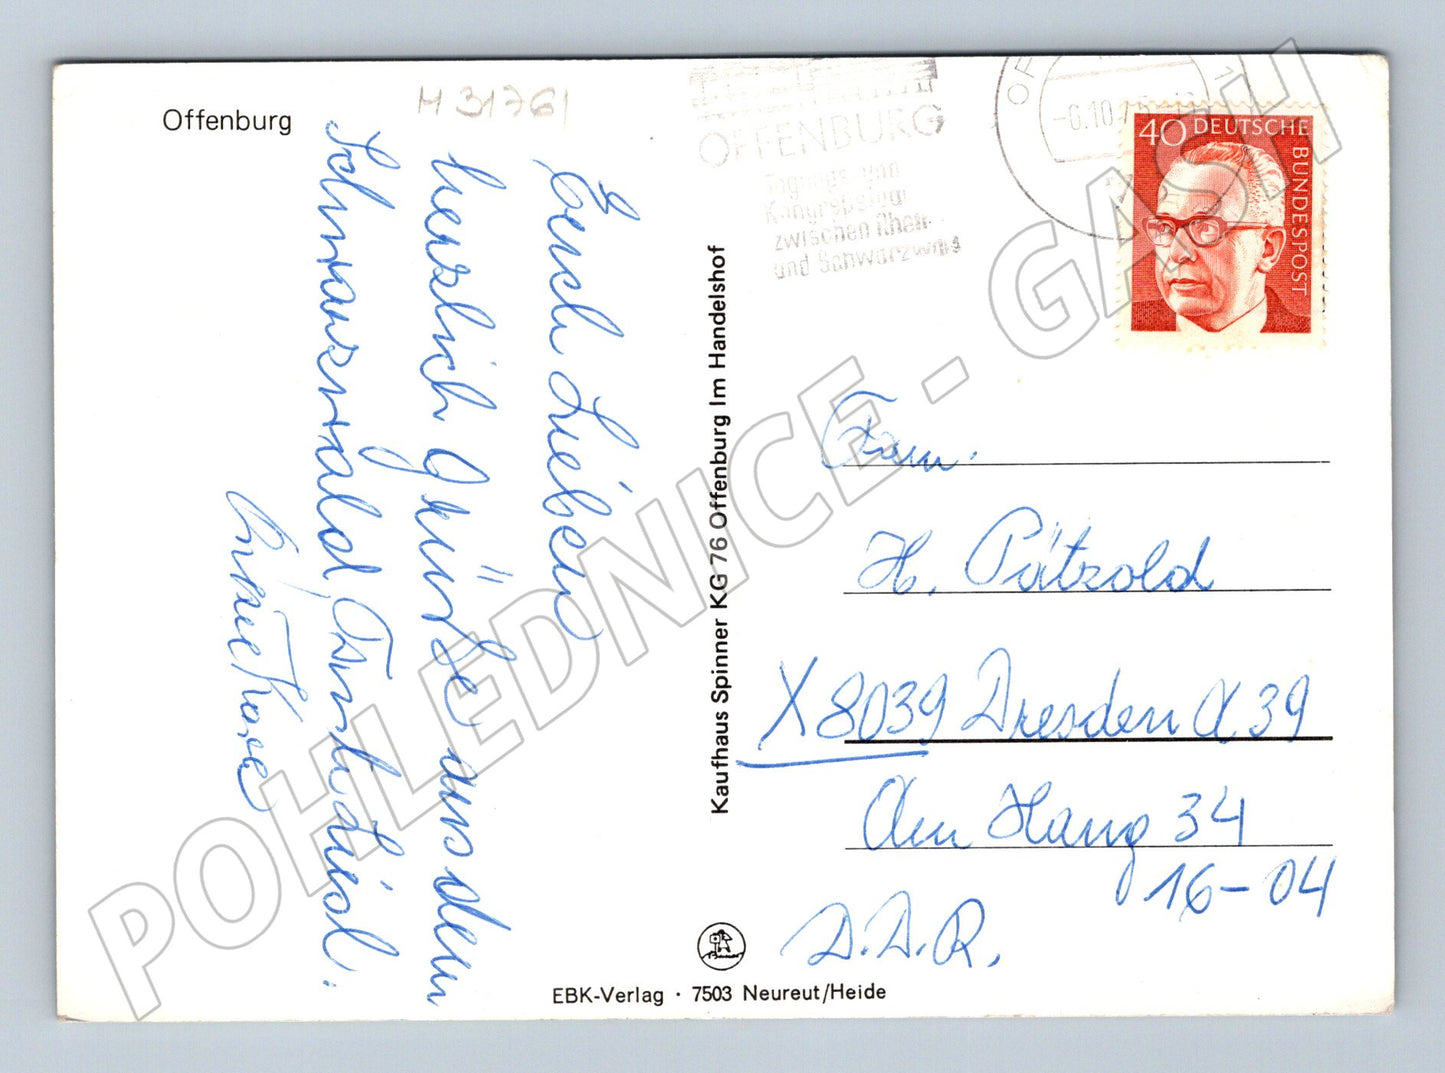 Offenburg
M 31761
OFFENBURG
Tagungs- und
zwischen Rhein
und Schwarzwald
-6.10.
40 DEUTSCHE
BUNDESPOST
Euch Lieben
herzlich Grüße aus dem
Schwarzwald,
Kaufhaus Spinner KG 76 Offenburg Im Handelshof
Fam.
H. Pätzold
X 8039 Dresden A 39
Am Hang 34
16-04
D.D.R.
EBK-Verlag · 7503 Neureut/Heide
POHLEDNICE - GASH